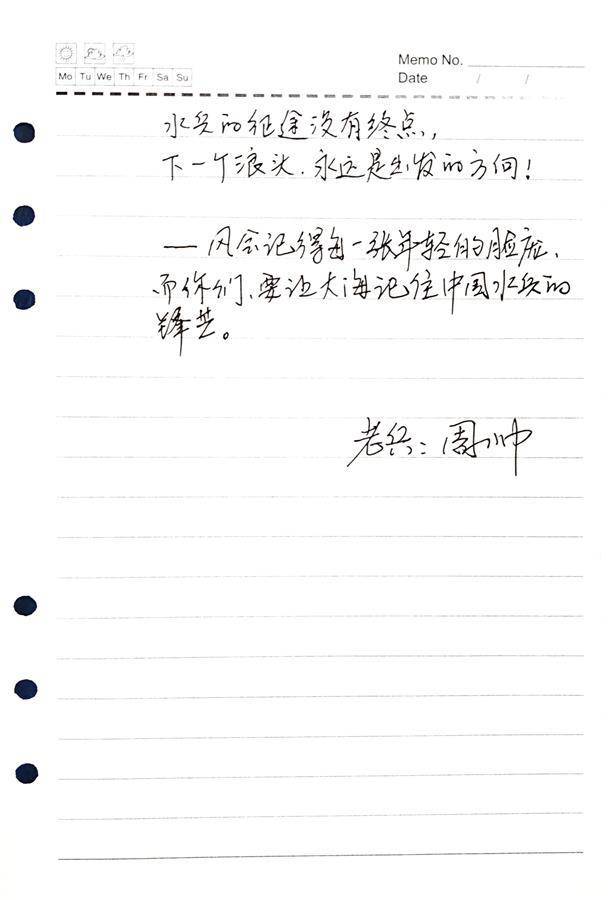 Memo No.
Mo Tu We Th Fr Sa Su
Date / /
水兵的征途没有终点，
下一个浪头，永远是出发的方向！
— 风会记得每一张年轻的脸庞、
而你们、要让大海记住中国水兵的
锋芒。
老兵：周帅